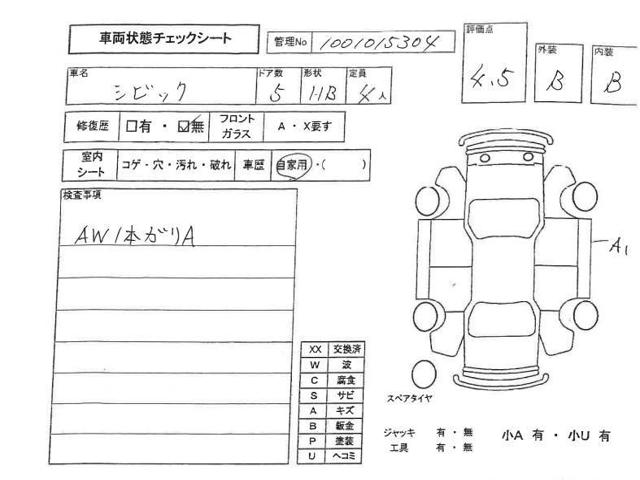 車両状態チェックシート 管理No 1001015304
評価点 4.5 外装 B 内装 B
車名 シビック ドア数 5 形状 HB 定員 4人
修復歴 □有・☑無 フロントガラス A・X要す
室内シート コゲ・穴・汚れ・破れ 車歴 自家用・( )
検査事項
AW1本ガリA
A1
XX 交換済
W 波
C 腐食
S サビ
A キズ
B 鈑金
P 塗装
U ヘコミ
スペアタイヤ
ジャッキ 有・無
工具 有・無
小A 有・小U 有